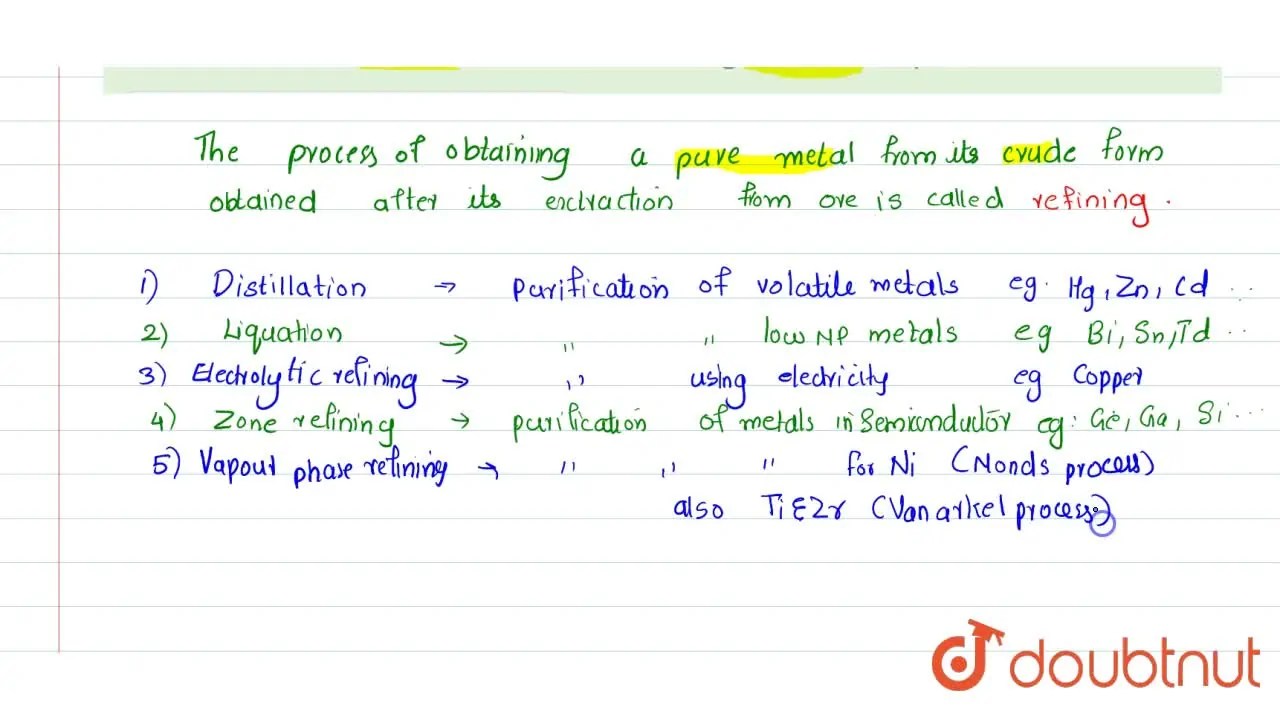 The process of obtaining a pure metal from its crude form
obtained after its exctraction from ore is called refining.
1) Distillation → purification of volatile metals eg. Hg, Zn, Cd ...
2) Liquation → " " low MP metals eg Bi, Sn, Td ...
3) Electrolytic refining → " using electricity eg Copper
4) Zone refining → purification of metals in Semiconductor eg: Ge, Ga, Si ...
5) Vapour phase refining → " " " for Ni (Monds process)
also Ti & Zr (Van arkel process)
doubtnut